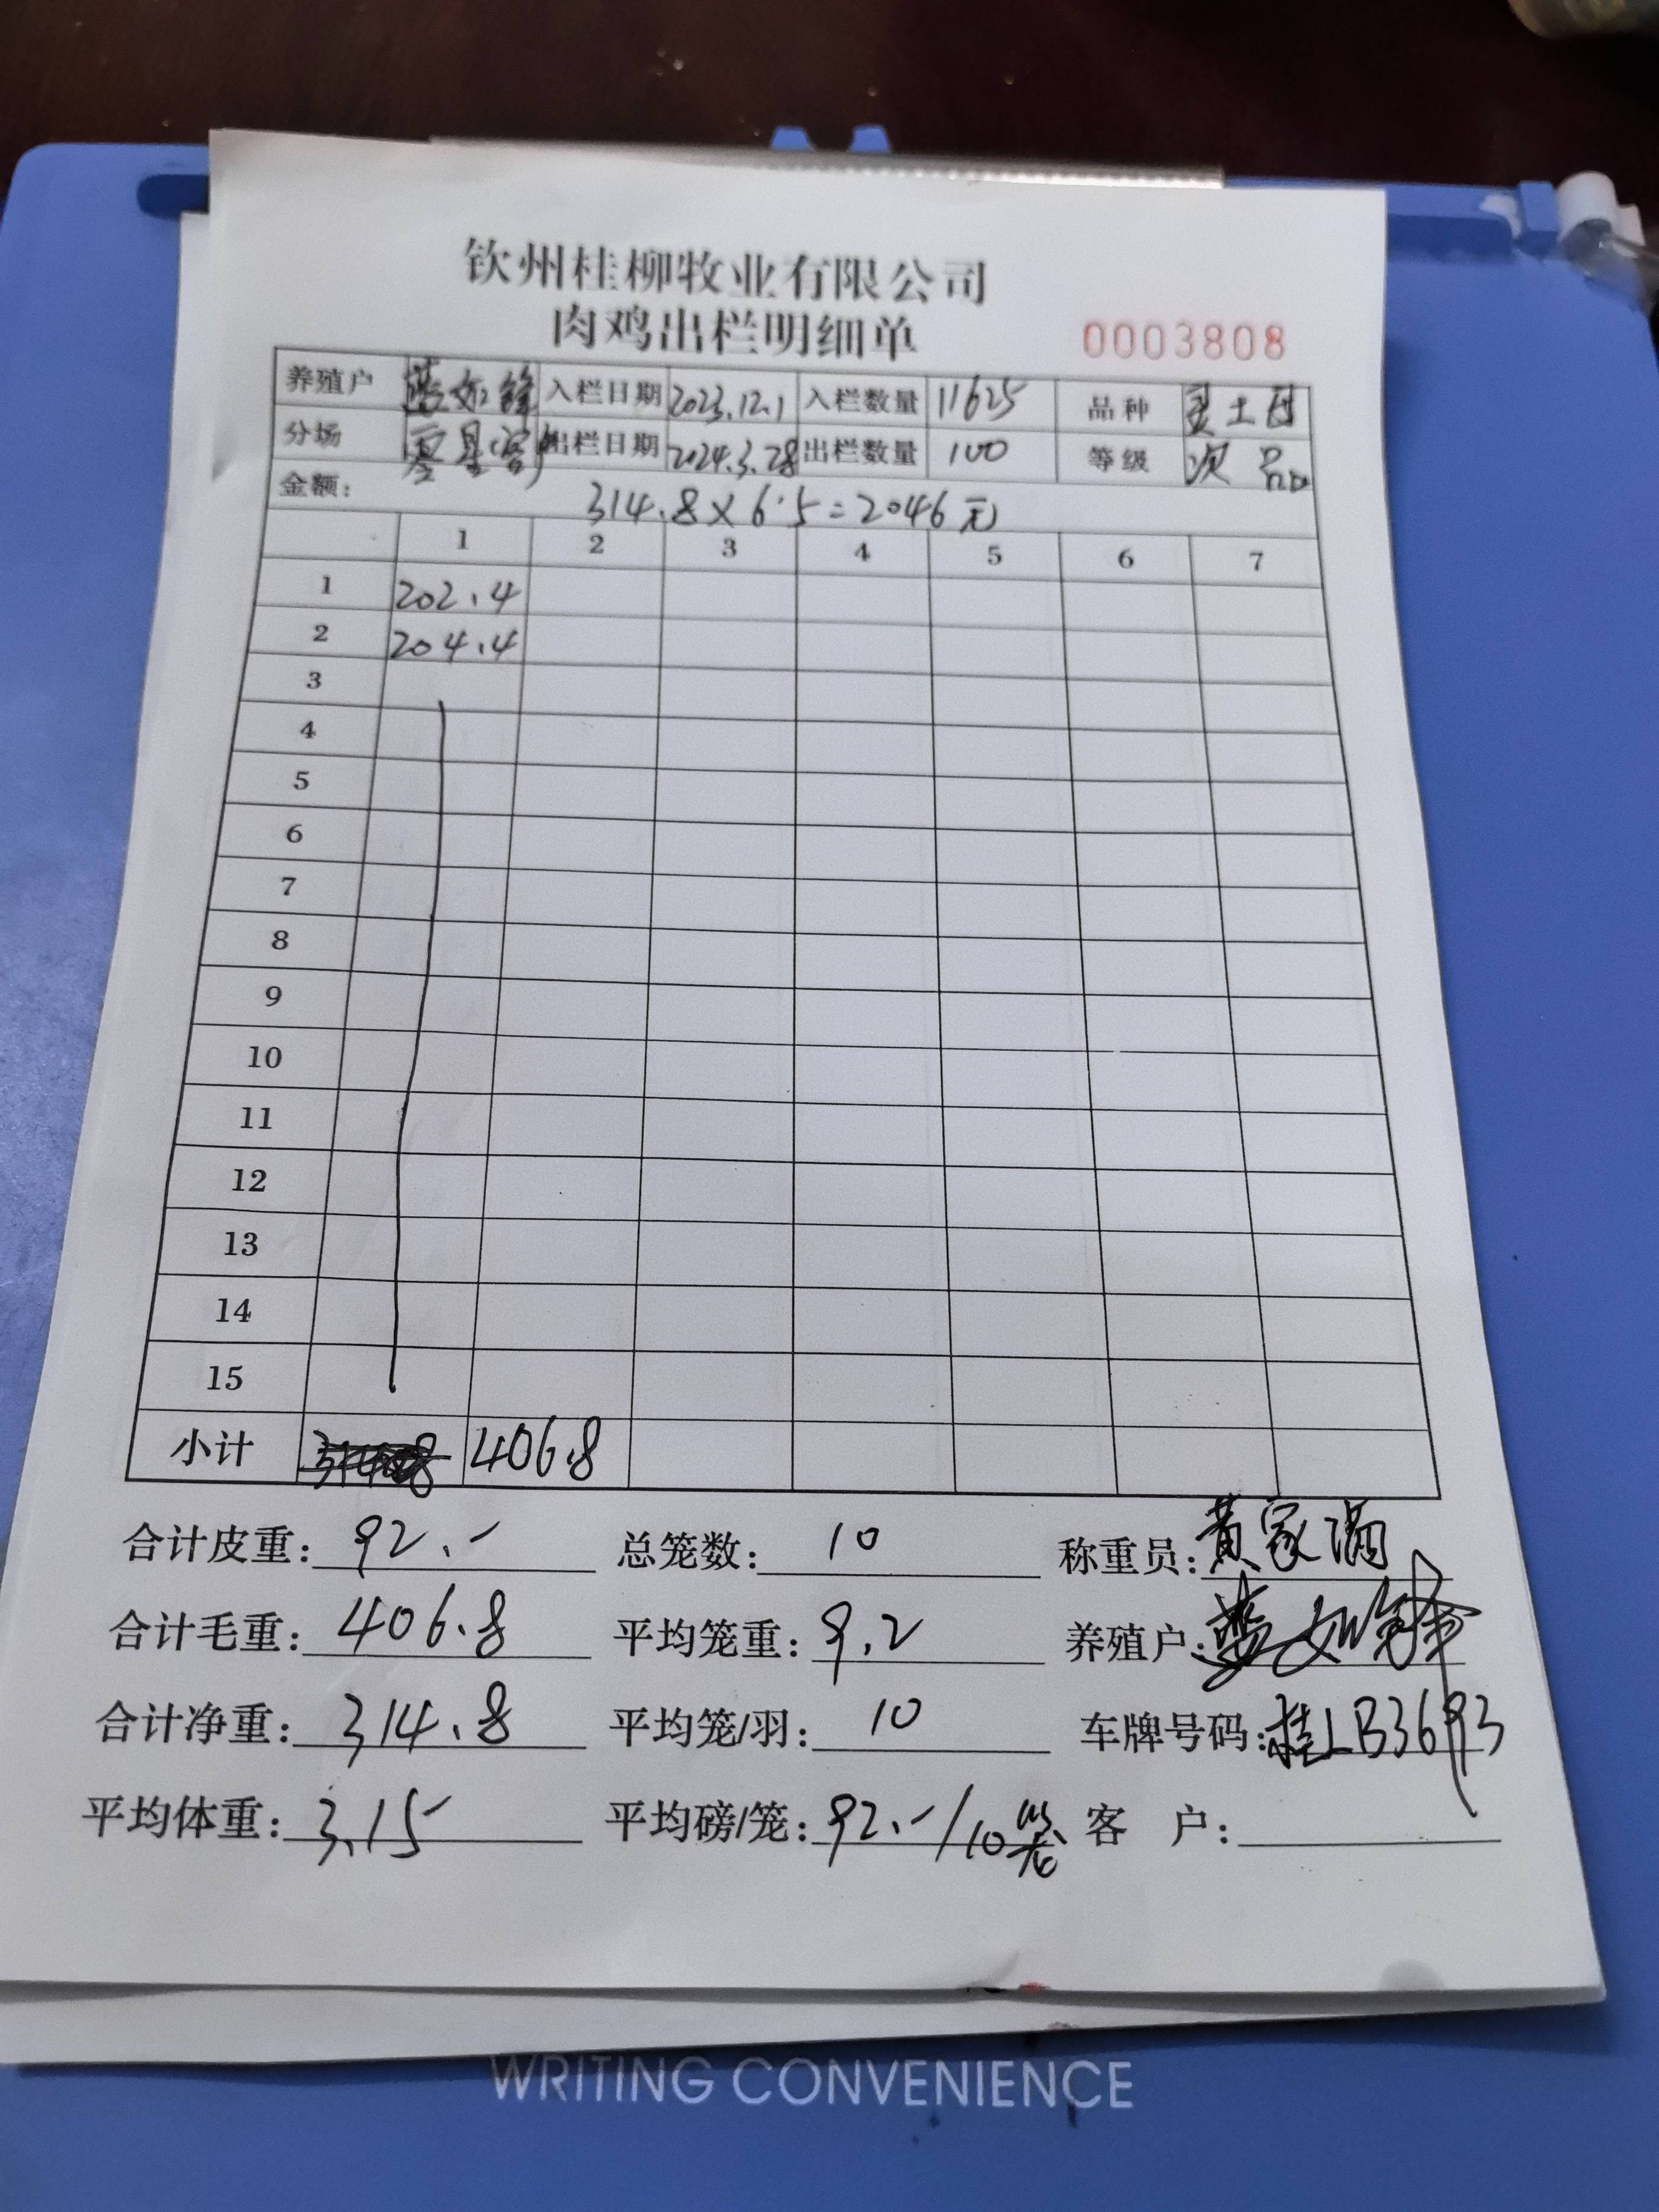 钦州桂柳牧业有限公司
肉鸡出栏明细单 0003808
养殖户 蓝如锋 入栏日期 2023.12.1 入栏数量 11625 品种 灵土
分场 零星客户 出栏日期 2024.3.28 出栏数量 100 等级 次品
金额: 314.8×6.5=2046元
1 2 3 4 5 6 7
1 202.4
2 204.4
3
4
5
6
7
8
9
10
11
12
13
14
15
小计 406.8
合计皮重: 92.- 总笼数: 10 称重员: 黄家满
合计毛重: 406.8 平均笼重: 9.2 养殖户: 蓝如锋
合计净重: 314.8 平均笼/羽: 10 车牌号码: 桂LB3693
平均体重: 3.15 平均磅/笼: 92.-/10笼 客 户:
WRITING CONVENIENCE